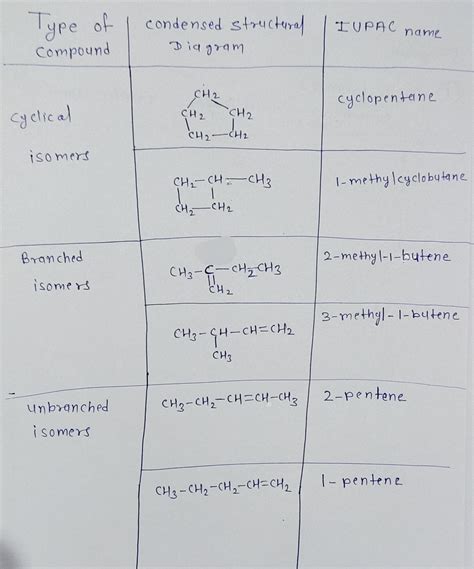 Type of compound
condensed structural Diagram
IUPAC name
cyclical isomers
CH2
CH2 CH2
CH2—CH2
cyclopentane
CH2—CH—CH3
CH2—CH2
1-methylcyclobutane
Branched isomers
CH3-C-CH2CH3
CH2
2-methyl-1-butene
CH3-CH-CH=CH2
CH3
3-methyl-1-butene
unbranched isomers
CH3-CH2-CH=CH-CH3
2-pentene
CH3-CH2-CH2-CH=CH2
1-pentene